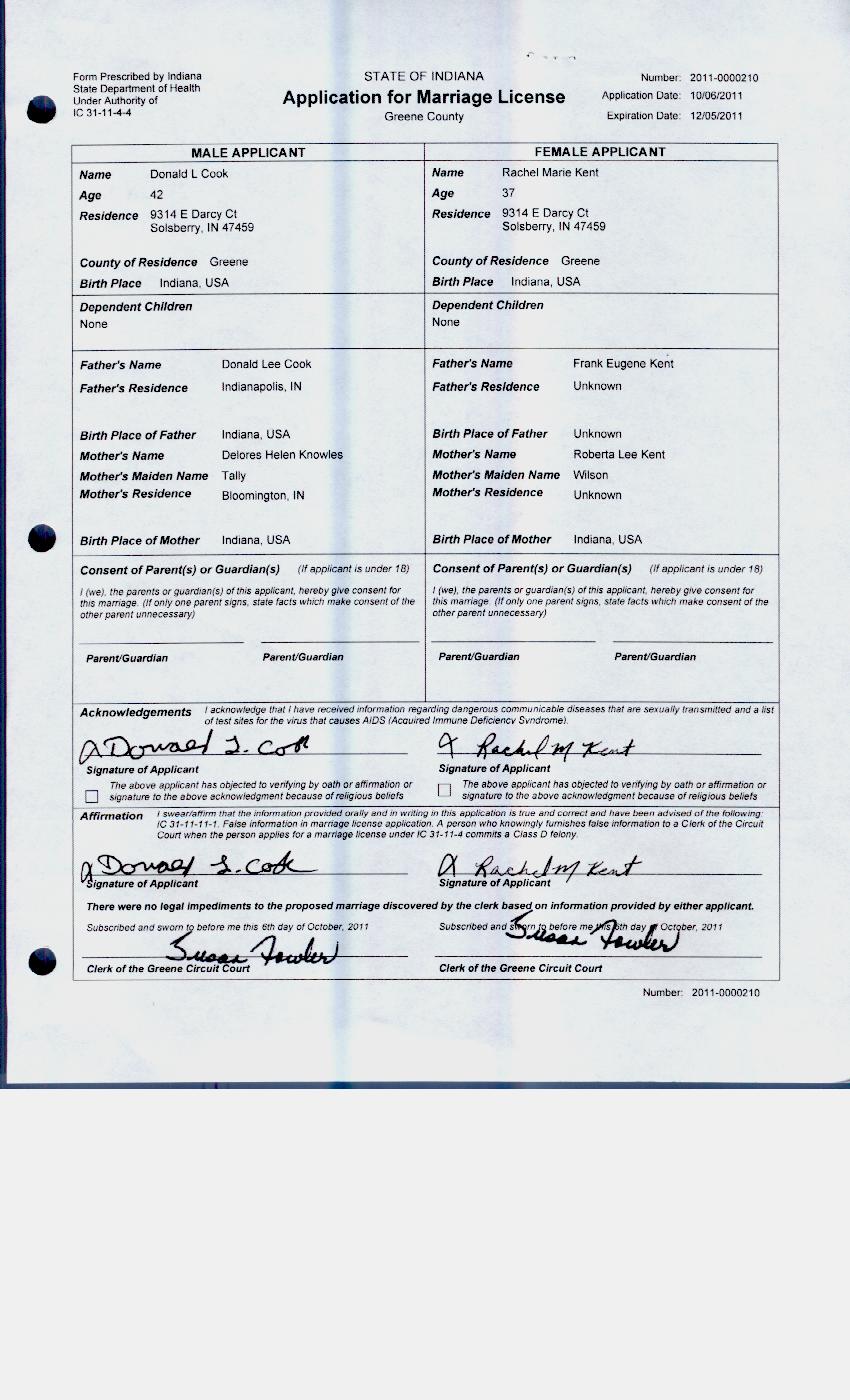 Form Prescribed by Indiana
State Department of Health
Under Authority of
IC 31-11-4-4
STATE OF INDIANA
Application for Marriage License
Greene County
Number: 2011-0000210
Application Date: 10/06/2011
Expiration Date: 12/05/2011
MALE APPLICANT
Name Donald L Cook
Age 42
Residence 9314 E Darcy Ct
Solsberry, IN 47459
County of Residence Greene
Birth Place Indiana, USA
Dependent Children
None
Father's Name Donald Lee Cook
Father's Residence Indianapolis, IN
Birth Place of Father Indiana, USA
Mother's Name Delores Helen Knowles
Mother's Maiden Name Tally
Mother's Residence Bloomington, IN
Birth Place of Mother Indiana, USA
Consent of Parent(s) or Guardian(s) (If applicant is under 18)
I (we), the parents or guardian(s) of this applicant, hereby give consent for
this marriage. (If only one parent signs, state facts which make consent of the
other parent unnecessary)
Parent/Guardian Parent/Guardian
FEMALE APPLICANT
Name Rachel Marie Kent
Age 37
Residence 9314 E Darcy Ct
Solsberry, IN 47459
County of Residence Greene
Birth Place Indiana, USA
Dependent Children
None
Father's Name Frank Eugene Kent
Father's Residence Unknown
Birth Place of Father Unknown
Mother's Name Roberta Lee Kent
Mother's Maiden Name Wilson
Mother's Residence Unknown
Birth Place of Mother Indiana, USA
Consent of Parent(s) or Guardian(s) (If applicant is under 18)
I (we), the parents or guardian(s) of this applicant, hereby give consent for
this marriage. (If only one parent signs, state facts which make consent of the
other parent unnecessary)
Parent/Guardian Parent/Guardian
Acknowledgements I acknowledge that I have received information regarding dangerous communicable diseases that are sexually transmitted and a list
of test sites for the virus that causes AIDS (Acquired Immune Deficiency Syndrome).
Donald L. Cook
Signature of Applicant
The above applicant has objected to verifying by oath or affirmation or
signature to the above acknowledgment because of religious beliefs
Rachel M Kent
Signature of Applicant
The above applicant has objected to verifying by oath or affirmation or
signature to the above acknowledgment because of religious beliefs
Affirmation I swear/affirm that the information provided orally and in writing in this application is true and correct and have been advised of the following:
IC 31-11-11-1. False information in marriage license application. A person who knowingly furnishes false information to a Clerk of the Circuit
Court when the person applies for a marriage license under IC 31-11-4 commits a Class D felony.
Donald L. Cook
Signature of Applicant
Rachel M Kent
Signature of Applicant
There were no legal impediments to the proposed marriage discovered by the clerk based on information provided by either applicant.
Subscribed and sworn to before me this 6th day of October, 2011
Susan Fowler
Clerk of the Greene Circuit Court
Subscribed and sworn to before me this 6th day of October, 2011
Susan Fowler
Clerk of the Greene Circuit Court
Number: 2011-0000210